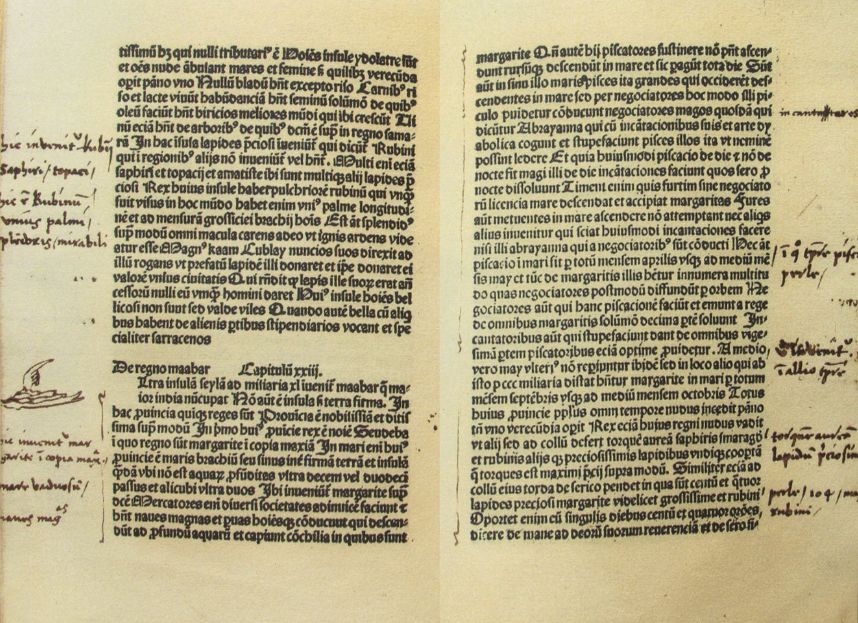 tissimū bȝ qui nulli tributariꝰ ē Holēs insule ydolatre sūt
et oēs nude ābulant mares et femine sȝ quilibȝ verecūda
oꝑit pāno vno Nullū bladū hn̄t excepto riso Carnibꝰ ri
so et lacte viuūt habūdanciā hn̄t seminū solūmō de quibꝰ
oleū faciūt hn̄t biricios meliores mūdi qui ibi crescūt Ui
nū eciā hn̄t de arboribꝰ de quibꝰ dc̄m ē suꝑ in regno sama
ra In hac īsula lapides p̄ciosi īueniūt qui dicūt Rubini
qui ī regionibꝰ alijs nō inueniūt vel hn̄t. Multi eni eciā
saphiri et topacij et amatiste ibi sunt multiqȝ alij lapides p̄
ciosi Rex huius insule habet pulchriorē rubinū qui vnqȝ
fuit visus in hoc mūdo habet enim vniꝰ palme longitudi-
nē et ad mensurā grossiciei brachij hoīs Est āt splēdidꝰ
suꝑ modū omni macula carens adeo vt ignis ardens vide
atur esse Magnꝰ kaam Cublay nuncios suos direxit ad
illū rogans vt prefatū lapidē illi donaret et ip̄e donaret ei
valorē vnius ciuitatis Qui rn̄dit qȝ lapis ille suoꝝ erat an̄
cessorū nulli eū vmqȝ homini daret Huiꝰ insule hoīes bel
licosi non sunt sed valde viles Quando autē bella cū aliq̄
bus habent de alienis ꝑtibus stipendiarios vocant et spe
cialiter sarracenos
De regno maabar Capitulū xxiii.
Ultra insulā seylā ad miliaria xl īuenit maabar q̄ ma-
ior india nūcupat Nō aūt ē insula sȝ terra firma. In
hac ꝓuincia quiqȝ reges sūt Prouīcia ē nobilissīa et ditis
sima suꝑ modū In p̄mo huiꝰ ꝓuīcie rex ē noīe Seudeba
ī quo regno sūt margarite ī copia maxīa In mari enī huiꝰ
ꝓuincie ē maris brachiū seu sinus int̄ firmā terrā et insulā
q̄ndā vbi nō est aquaꝝ ꝓfūditas vltra decem vel duodecī
passus et alicubi vltra duos Ibi inueniūt margarite suꝑ
dc̄e Mercatores enī diuersi societates adinuicē faciūt ⁊
hn̄t naues magnas et ꝑuas hoīesqȝ cōducūt qui descen-
dūt ad ꝓfundū aquarū et capiunt cōchilia in quibus sunt
hic invenitꝰ Rubini
saphiri / topaci /
hic ē Rubinū
vnius palmi /
mirabili
hic invenitꝰ mar
garite ī copia max̄
mare vadosū /
margarite Q̄n̄ autē hij piscatores sustinere nō pn̄t ascen-
dunt rursūqȝ descendūt in mare et sic ꝑagūt tota die Sūt
aūt in sinu illo maris pisces ita grandes qui occiderēt des-
cendentes in mare sed per negociatores hoc modo illi pi-
culo ꝓuidetur cōducunt negociatores magos quosdā qui
dicūtur Abrayanna qui cū incātacionibus suis et arte dy
abolica cogunt et stupefaciunt pisces illos ita vt neminē
possunt ledere Et quia huiusmodi piscacio de die ⁊ nō de
nocte fit magi illi de die incātaciones faciunt quos sero ꝓ
nocte dissoluunt Timent enim quis furtim sine negociato
rū licencia mare descendat et accipiat margaritas Fures
aūt metuentes in mare ascendere nō attemptant nec aliqs
alius inuenitur qui sciat huiusmodi incantaciones facere
nisi illi abrayanna qui a negociatoribꝰ sūt cōducti Hec āt
piscacio ī mari fit ꝑ totū mensem aprilis vsqȝ ad mediū mē
sis may et tūc de margaritis illis hētur innumera multitu
do quas negociatores postmodū diffundūt ꝑ orbem He
gociatores aūt qui hanc piscacionē faciūt et emunt a rege
de omnibus margaritis solūmō decima ꝑtē soluunt In-
cantatoribus aūt qui stupefaciunt dant de omnibus vige-
simā ꝑtem piscatoribus eciā optime ꝓuidetur. A medio
vero may vlteriꝰ nō reꝑiuntur ibidē sed in loco alio qui ab
isto ꝑ ccc miliaria distat hn̄tur margarite in mari ꝑ totum
mēsem septēbris vsqȝ ad mediū mensem octobris Totus
huius ꝓuincie pp̄lus omni tempore nudus incedit pāno
tn̄ vno verecūdia oꝑit Rex eciā huius regni nudus vadit
vt alij sed ad collū defert torquē aureā saphiris smaragdꝭ
et rubinis alijs qȝ preciosissimis lapidibus vndiqȝ cooꝑtā
q̄ torques est maximi p̄cij supra modū. Similiter eciā ad
collū eius corda de serico pendet in qua sūt centū et q̄tuor
lapides preciosi margarite videlicet grossissime et rubini
Oportet enim eū singulis diebus centū et quatuor or̄ōes
dicere de mane ad deorū suorum reuerenciā et de sero si-
incantatores
perle /
ī alio tꝑre
torquē aureā
lapidū p̄ciosiū
perle / 104 /
rubini /